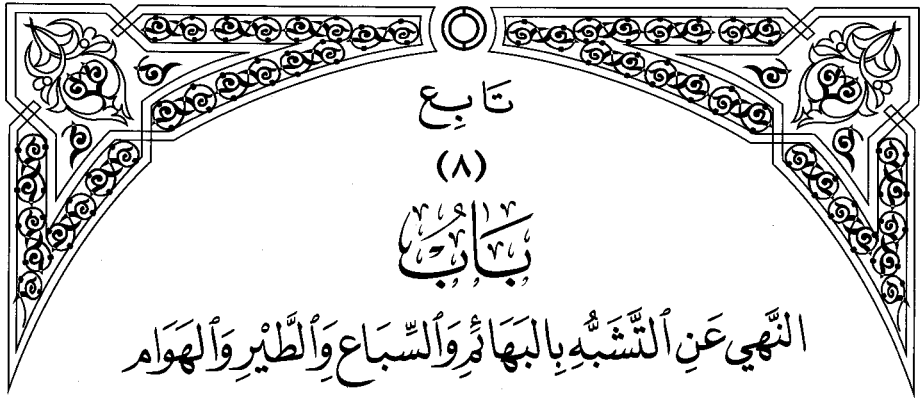 تَابِع
(٨)
بَابُ
النَّهيِ عَنِ ٱلتَّشَبُّهِ بِالبَهَائِمِ وَٱلسِّبَاعِ وَٱلطَّيْرِ وَٱلهَوَام